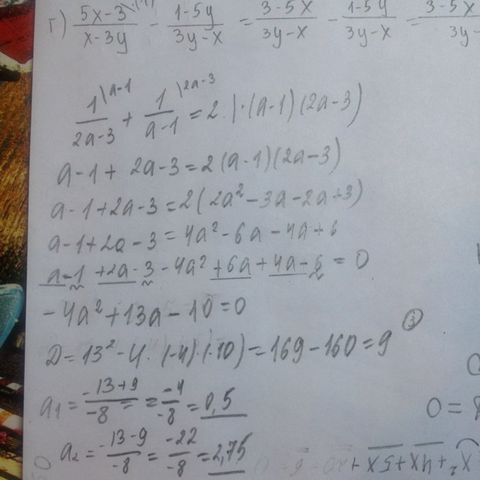 г) 5x-3/x-3y - 1-5y/3y-x = 3-5x/3y-x - 1-5y/3y-x = 3-5x/3y-
1\a-1/2a-3 + 1\2a-3/a-1 = 2 |·(a-1)(2a-3)
a-1+ 2a-3=2(a-1)(2a-3)
a-1+2a-3=2(2a²-3a-2a+3)
a-1+2a-3=4a²-6a-4a+6
a-1+2a-3-4a²+6a+4a-6=0
-4a²+13a-10=0
D=13²-4·(-4)·(-10)=169-160=9 ③
a₁=-13+9/-8=-4/-8=0,5
0=
a₂=-13-9/-8=-22/-8=2,75
x²+4x+5x+